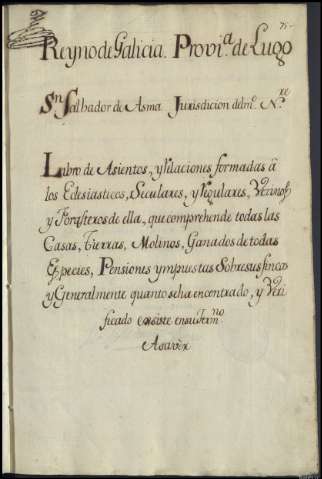 Reyno de Galicia. Provi.ª de Lugo
Sn Salbador de Asma Jurisdicion delm.º N.re
Libro de Asientos, y Rilaciones formadas â
los Eclesiasticos, Seculares, y Regulares, Vezinos
y Forasteros de ella, que comprehende todas las
Casas, Tierras, Molinos, Ganados de todas
Especies, Pensiones ympuestas Sobre sus fincas
y Generalmente quanto seha encontrado, y Veri
ficado existe ensu term.no
Asavèr